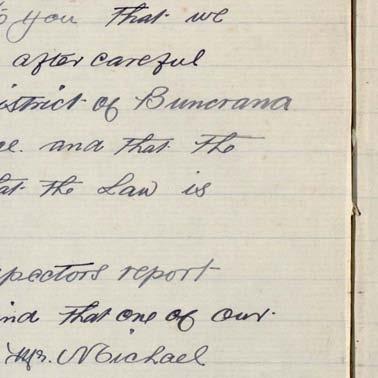 you that we
after careful
district of Buncrana
and that the
that the Law is
spectors report
and that one of our
Mr. Michael